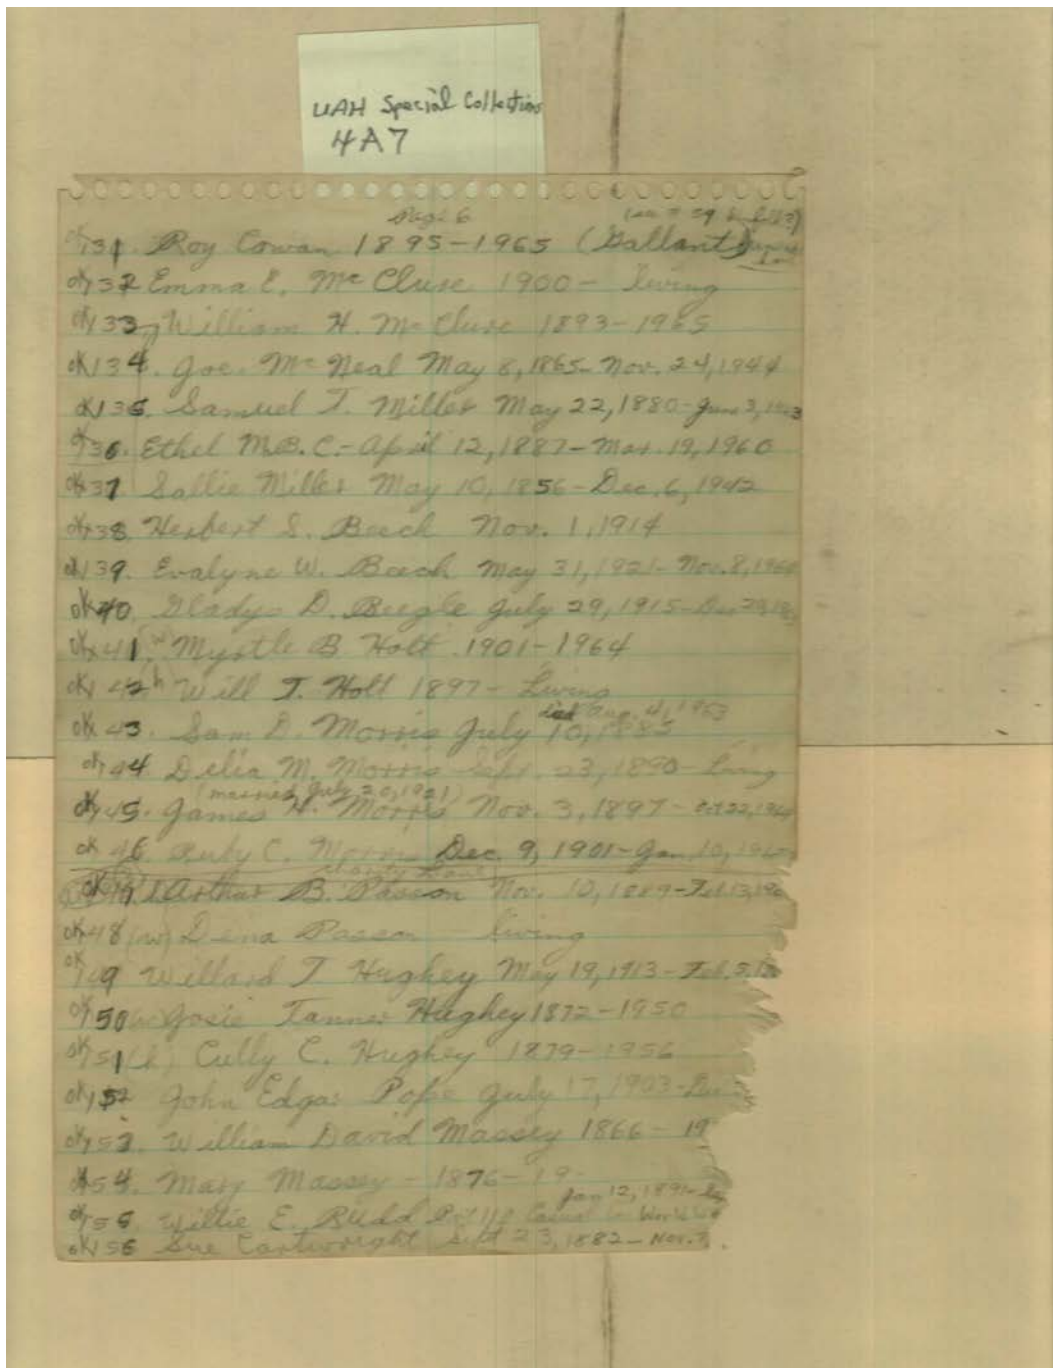 UAH Special Collection
4A7
Page 6
ok 131. Roy Cowan 1895-1965 (Gallant)
ok 132 Emma E. McClure 1900- living
ok 133 William H. McClure 1893-1965
ok 134. Joe. McNeal May 8, 1865- Nov. 24, 1944
ok 135. Samuel T. Miller May 22, 1880- June 3,
ok 136. Ethel M.B.C.- April 12, 1887- Mar. 19, 1960
ok 137 Sallie Miller May 10, 1856- Dec. 6, 1942
ok 138. Herbert S. Beech Nov. 1, 1914
ok 139. Evalyne W. Beech May 31, 1921- Nov. 8, 1960
ok 140. Gladys D. Beegle July 29, 1915-
ok 141. w Myrtle B Holt. 1901-1964
ok 142 h Will T. Holt 1897- Living
died Aug. 4, 1963
ok 143. Sam D. Morris July 10, 1885
ok 144. Delia M. Morris Sept. 23, 1890- Living
(married July 20, 1921)
ok 145. James H. Morris Nov. 3, 1897- Oct 22,
ok 146. Ruby C. Morris Dec. 9, 1901- Jan. 10,
ok 147 Arthur B. Passon Nov. 10, 1889- Feb. 13,
ok 148 (w) Dena Passon - living
ok 149 Willard T Hughey May 19, 1913- Feb. 5,
ok 150 w Josie Tanner Hughey 1872-1950
ok 151 (h) Cully C. Hughey 1879-1956
ok 152 John Edgar Pope July 17, 1903-
ok 153. William David Massey 1866- 19
ok 154. Mary Massey - 1876- 19
Jan 12, 1891-
ok 155. Willie E. Rudd
ok 156 Sue Cartwright Sept 23, 1882- Nov. 7